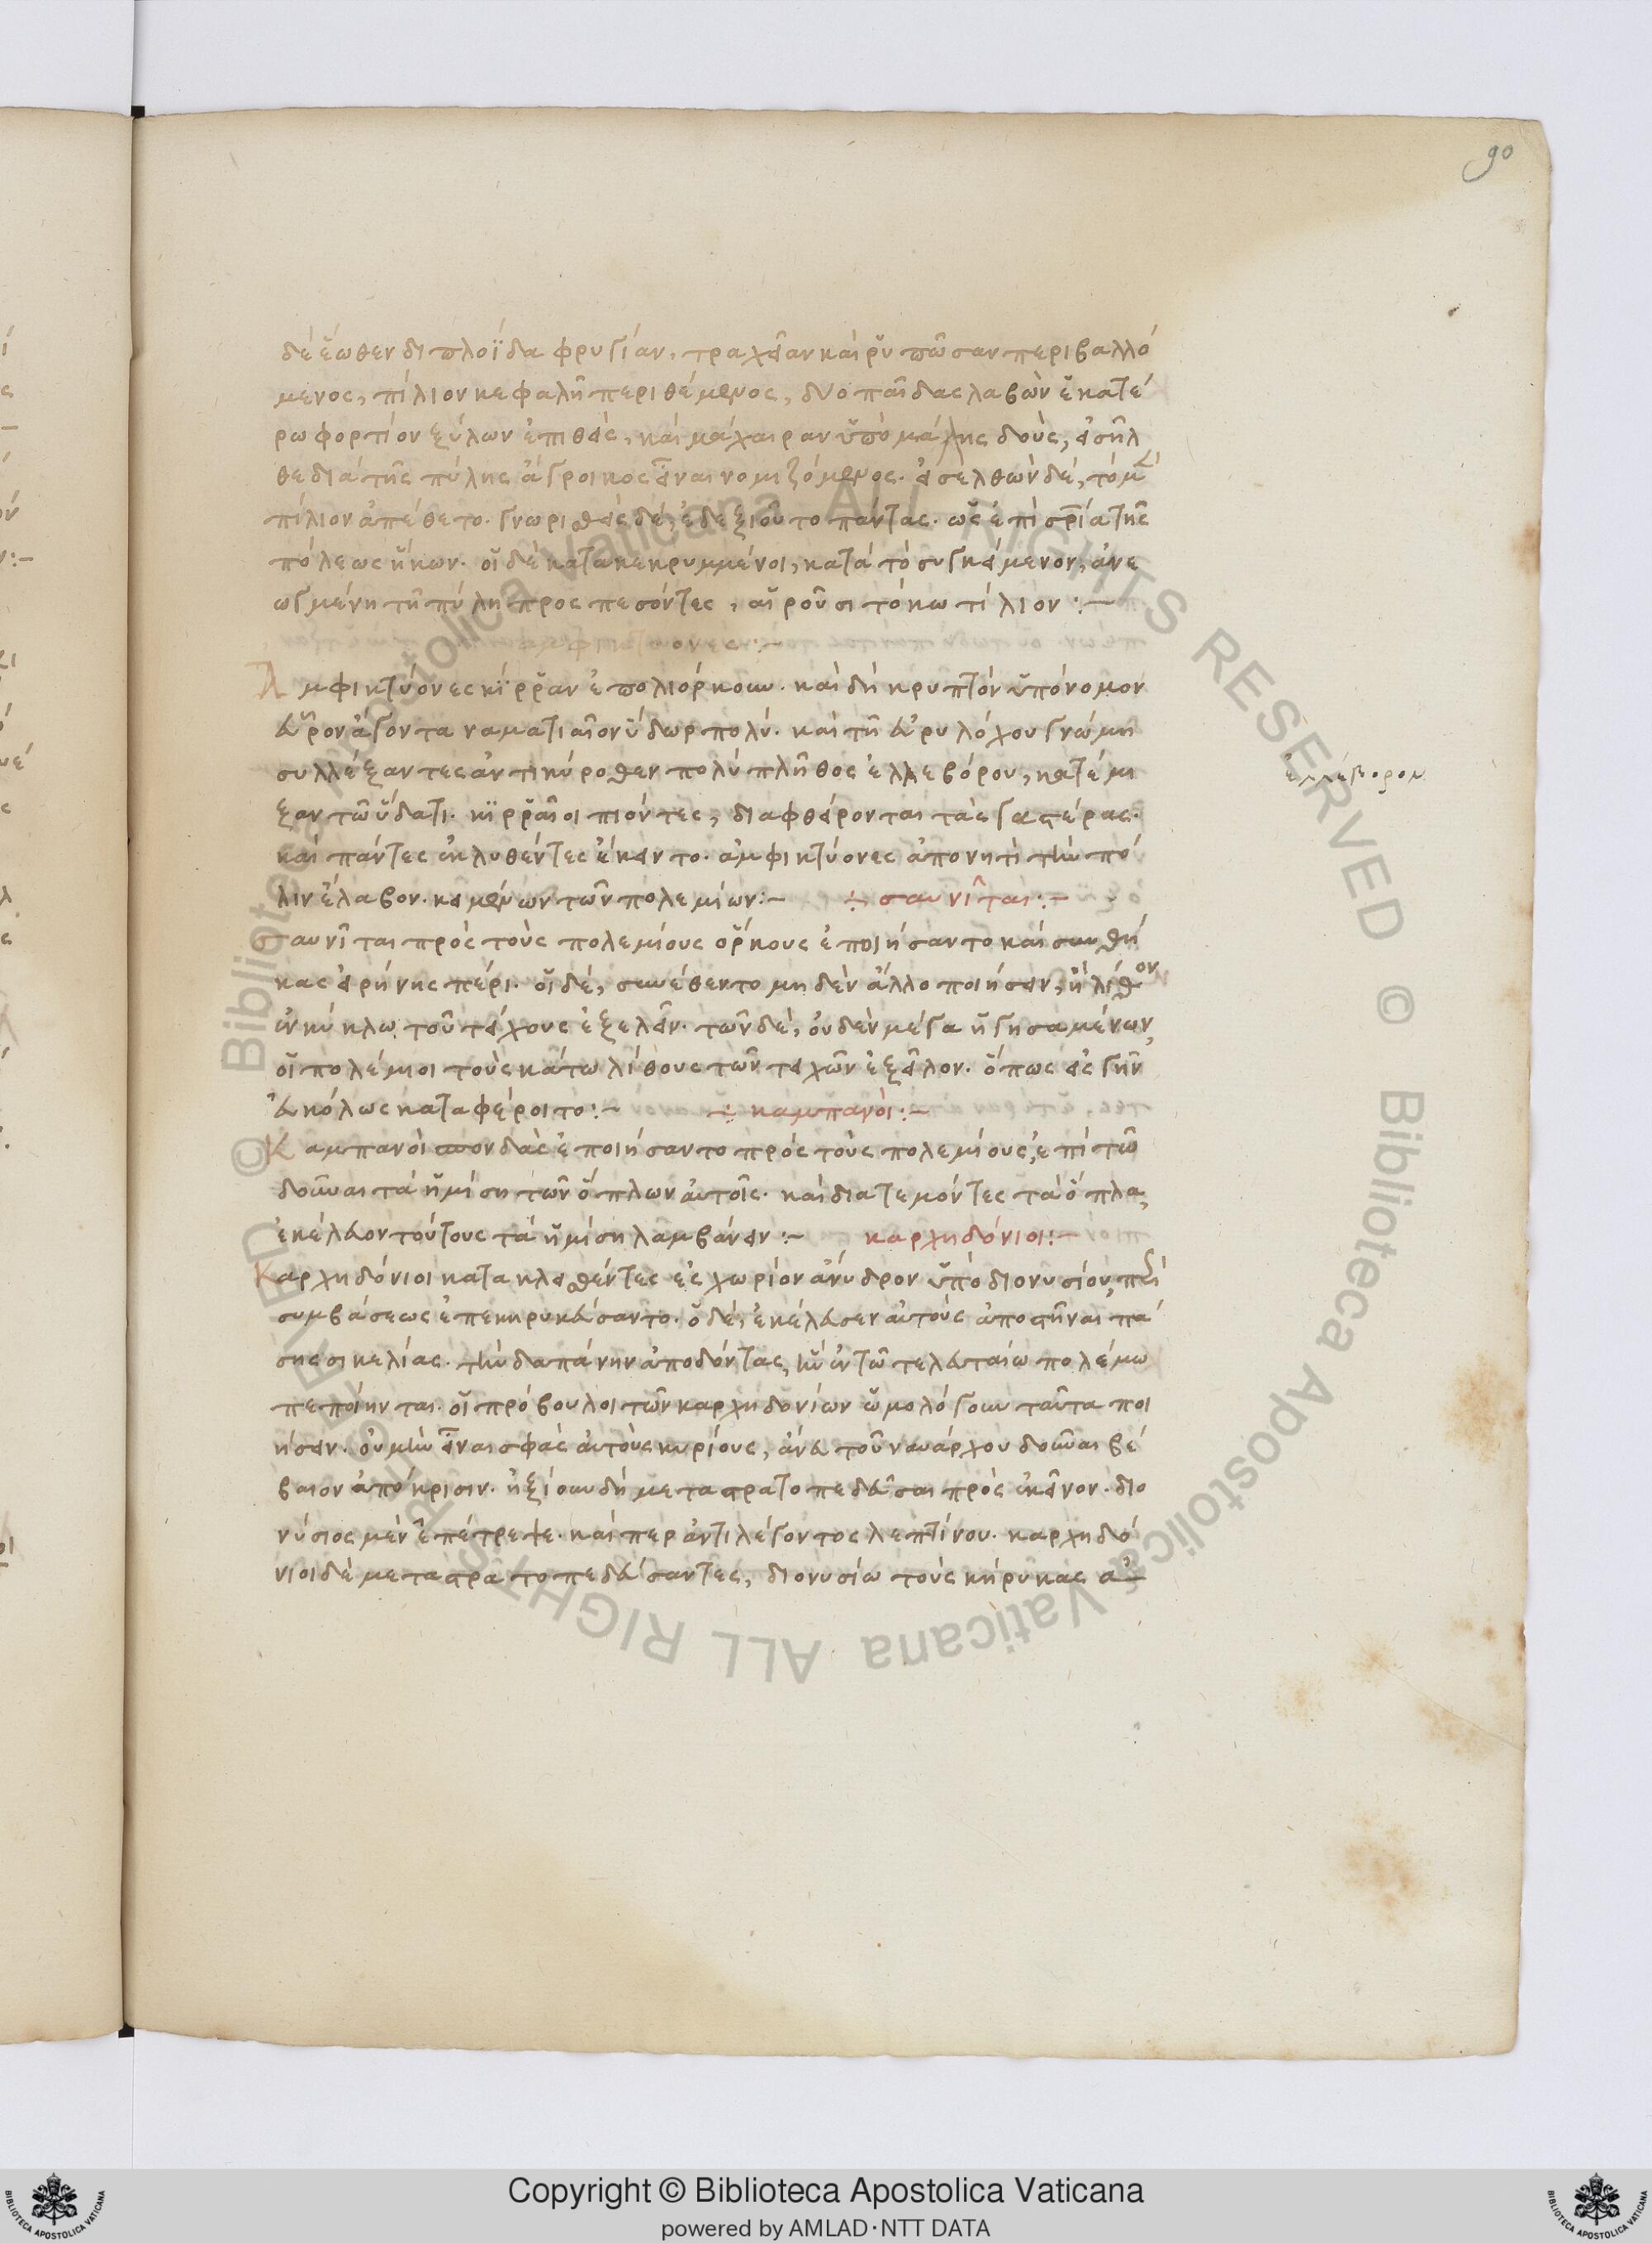 90
δέ ἔωθεν διπλοΐδα φρυγίαν, τραχεῖαν καὶ ῥυπῶσαν περιβαλλό
μενος, πίλιον κεφαλῆ περιθέμενος, δύο παῖδας λαβὼν ἑκατέ
ρω φορτίον ξύλων ἐπιθεὶς, καὶ μάχαιραν ὑπὸ μάλης δοὺς, εἰσῆλ
θε διὰ τῆς πύλης ἄγροικος εἶναι νομιζόμενος. εἰσελθὼν δέ, τὸ μὲν
πίλιον ἀπέθετο. γνωρισθεὶς δέ, ἐδεξιοῦτο πάντας. ὡς ἐπὶ σωτηρία τῆς
πόλεως ἥκων. οἱ δὲ κατακεκρυμμένοι, κατὰ τὸ συγκείμενον, ἀνε
ωγμένη τῆ πύλη προσπεσόντες, αἱροῦσι τὸ κωτίλιον :—
Ἀμφικτύονες κίρραν ἐπολιόρκουν. καὶ δὴ κρυπτὸν ὑπόνομον
εὗρον ἄγοντα ναματιαῖον ὕδωρ πολύ. καὶ τῆ εὐρυλόχου γνώμη
συλλέξαντες ἀντικύροθεν πολὺ πλῆθος ἐλλεβόρου, κατέμι
ξαν τῶ ὕδατι. κιρραῖοι πιόντες, διαφθείρονται τὰς γαστέρας.
καὶ πάντες ἐκλυθέντες ἔκειντο. ἀμφικτύονες ἀπονητὶ τὴν πό
λιν ἔλαβον. κειμένων τῶν πολεμίων:— ÷ σαυνῖται:—
σαυνῖται πρὸς τοὺς πολεμίους ὅρκους ἐποιήσαντο καὶ συνθή
κας εἰρήνης πέρι. οἱ δέ, συνέθεντο μηδὲν ἄλλο ποιήσειν, ἢ λίθον
ἐν κύκλω τοῦ τείχους ἐξελεῖν. τῶν δὲ, οὐδὲν μέγα ἡγησαμένων,
οἱ πολέμιοι τοὺς κάτω λίθους τῶν τειχῶν ἐξεῖλον. ὅπως εἰς γῆν
εὐκόλως καταφέροιτο:— ÷ καμπανοὶ:—
Καμπανοὶ σπονδὰς ἐποιήσαντο πρὸς τοὺς πολεμίους, ἐπὶ τῶ
δοῦναι τὰ ἡμίση τῶν ὅπλων αὐτοῖς. καὶ διατεμόντες τὰ ὅπλα,
ἐκέλευον τούτους τὰ ἡμίση λαμβάνειν :— καρχηδόνιοι:—
Καρχηδόνιοι κατακλεισθέντες εἰς χωρίον ἄνυδρον ὑπὸ διονυσίου, περὶ
συμβάσεως ἐπεκηρυκεύσαντο. ὁ δέ, ἐκέλευσεν αὐτοὺς ἀποστῆναι πά
σης σικελίας. τὴν δαπάνην ἀποδόντας, ἣν ἐν τῶ τελευταίω πολέμω
πεποίηνται. οἱ πρόβουλοι τῶν καρχηδονίων ὡμολόγουν ταῦτα ποι
ήσειν. οὐ μὴν εἶναι σφᾶς αὐτοὺς κυρίους, ἄνευ τοῦ ναυάρχου δοῦναι βέ
βαιον ἀπόκρισιν. ἠξίουν δὴ μεταστρατοπεδεῦσαι πρὸς ἐκεῖνον. διο
νύσιος μὲν ἐπέτρεψε. καίπερ ἀντιλέγοντος λεπτίνου. καρχηδό
νιοι δὲ μεταστρατοπεδεύσαντες, διονυσίω τοὺς κήρυκας ἀ—
ἐλλέβορον
Copyright © Biblioteca Apostolica Vaticana
powered by AMLAD·NTT DATA